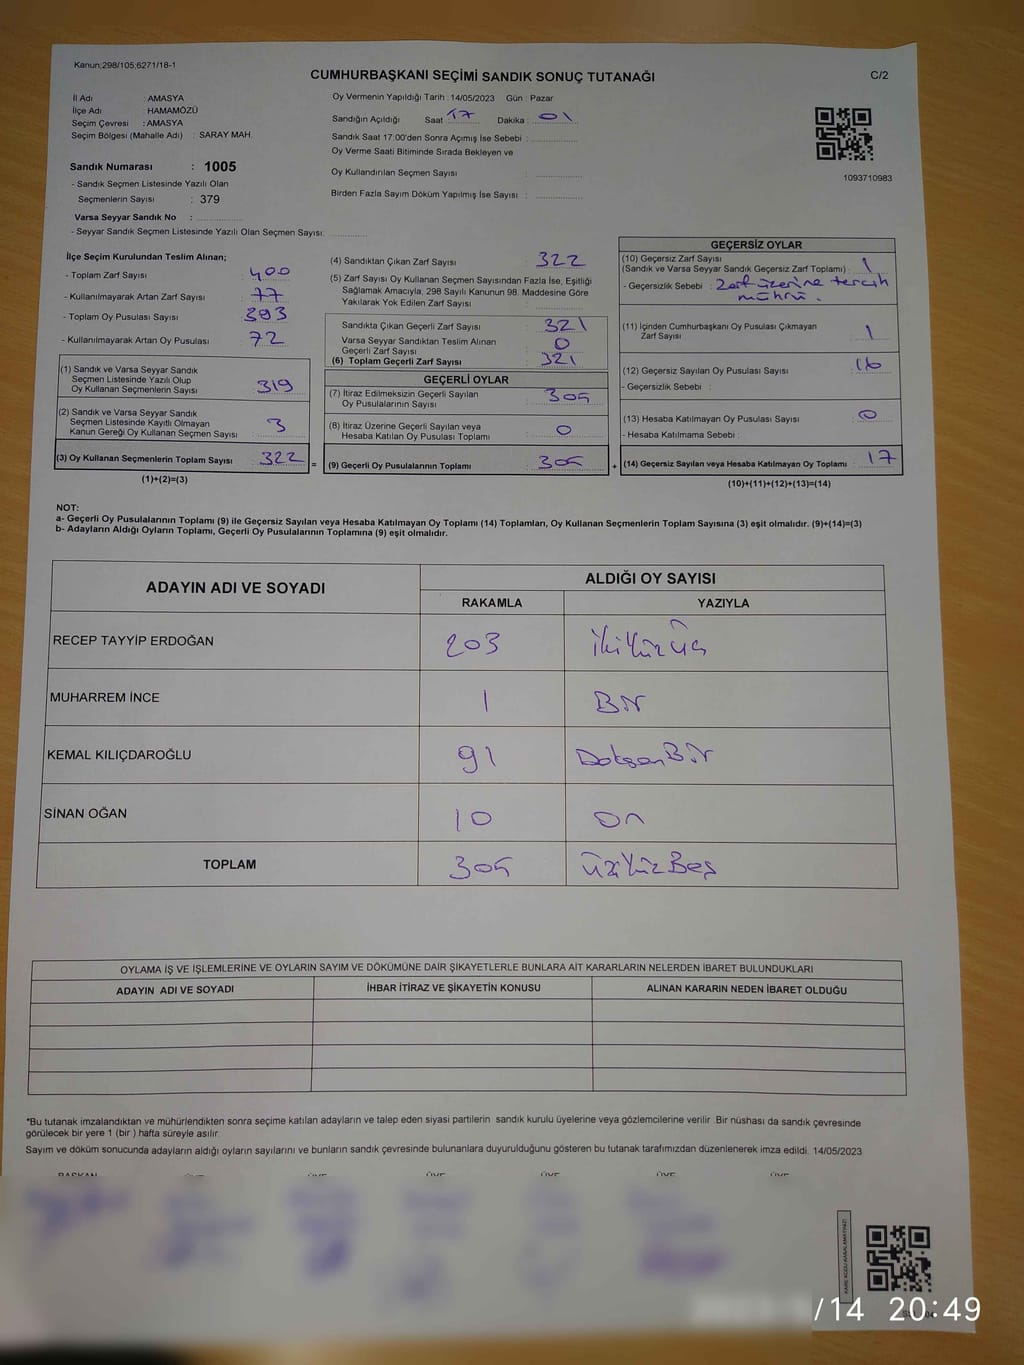 Kanun:298/105;6271/18-1
CUMHURBAŞKANI SEÇİMİ SANDIK SONUÇ TUTANAĞI
C/2
İl Adı : AMASYA
İlçe Adı : HAMAMÖZÜ
Seçim Çevresi : AMASYA
Seçim Bölgesi (Mahalle Adı) : SARAY MAH.
Sandık Numarası : 1005
- Sandık Seçmen Listesinde Yazılı Olan
Seçmenlerin Sayısı : 379
Varsa Seyyar Sandık No :
- Seyyar Sandık Seçmen Listesinde Yazılı Olan Seçmen Sayısı:
Oy Vermenin Yapıldığı Tarih : 14/05/2023 Gün : Pazar
Sandığın Açıldığı Saat 17 Dakika : 01
Sandık Saat 17:00'den Sonra Açımış İse Sebebi :
Oy Verme Saati Bitiminde Sırada Bekleyen ve
Oy Kullandırılan Seçmen Sayısı :
Birden Fazla Sayım Döküm Yapılmış İse Sayısı :
1093710983
İlçe Seçim Kurulundan Teslim Alınan;
- Toplam Zarf Sayısı : 400
- Kullanılmayarak Artan Zarf Sayısı : 77
- Toplam Oy Pusulası Sayısı : 393
- Kullanılmayarak Artan Oy Pusulası : 72
(1) Sandık ve Varsa Seyyar Sandık
Seçmen Listesinde Yazılı Olup
Oy Kullanan Seçmenlerin Sayısı : 319
(2) Sandık ve Varsa Seyyar Sandık
Seçmen Listesinde Kayıtlı Olmayan
Kanun Gereği Oy Kullanan Seçmen Sayısı : 3
(3) Oy Kullanan Seçmenlerin Toplam Sayısı : 322
(1)+(2)=(3)
(4) Sandıktan Çıkan Zarf Sayısı : 322
(5) Zarf Sayısı Oy Kullanan Seçmen Sayısından Fazla İse, Eşitliği
Sağlamak Amacıyla, 298 Sayılı Kanunun 98. Maddesine Göre
Yakılarak Yok Edilen Zarf Sayısı :
Sandıkta Çıkan Geçerli Zarf Sayısı : 321
Varsa Seyyar Sandıktan Teslim Alınan
Geçerli Zarf Sayısı : 0
(6) Toplam Geçerli Zarf Sayısı : 321
GEÇERLİ OYLAR
(7) İtiraz Edilmeksizin Geçerli Sayılan
Oy Pusulalarının Sayısı : 305
(8) İtiraz Üzerine Geçerli Sayılan veya
Hesaba Katılan Oy Pusulası Toplamı : 0
= (9) Geçerli Oy Pusulalarının Toplamı : 305 +
GEÇERSİZ OYLAR
(10) Geçersiz Zarf Sayısı
(Sandık ve Varsa Seyyar Sandık Geçersiz Zarf Toplamı) : 1
- Geçersizlik Sebebi : Zarf üzerine tercih
mührü.
(11) İçinden Cumhurbaşkanı Oy Pusulası Çıkmayan
Zarf Sayısı : 1
(12) Geçersiz Sayılan Oy Pusulası Sayısı : 16
- Geçersizlik Sebebi :
(13) Hesaba Katılmayan Oy Pusulası Sayısı : 0
- Hesaba Katılmama Sebebi :
(14) Geçersiz Sayılan veya Hesaba Katılmayan Oy Toplamı : 17
(10)+(11)+(12)+(13)=(14)
NOT:
a- Geçerli Oy Pusulalarının Toplamı (9) ile Geçersiz Sayılan veya Hesaba Katılmayan Oy Toplamı (14) Toplamları, Oy Kullanan Seçmenlerin Toplam Sayısına (3) eşit olmalıdır. (9)+(14)=(3)
b- Adayların Aldığı Oyların Toplamı, Geçerli Oy Pusulalarının Toplamına (9) eşit olmalıdır.
ADAYIN ADI VE SOYADI ALDIĞI OY SAYISI
RAKAMLA YAZIYLA
RECEP TAYYİP ERDOĞAN 203 İkiYüzÜç
MUHARREM İNCE 1 Bir
KEMAL KILIÇDAROĞLU 91 DoksanBir
SİNAN OĞAN 10 On
TOPLAM 305 ÜçYüzBeş
OYLAMA İŞ VE İŞLEMLERİNE VE OYLARIN SAYIM VE DÖKÜMÜNE DAİR ŞİKAYETLERLE BUNLARA AİT KARARLARIN NELERDEN İBARET BULUNDUKLARI
ADAYIN ADI VE SOYADI İHBAR İTİRAZ VE ŞİKAYETİN KONUSU ALINAN KARARIN NEDEN İBARET OLDUĞU
*Bu tutanak imzalandıktan ve mühürlendikten sonra seçime katılan adayların ve talep eden siyasi partilerin sandık kurulu üyelerine veya gözlemcilerine verilir .Bir nüshası da sandık çevresinde
görülecek bir yere 1 (bir ) hafta süreyle asılır.
Sayım ve döküm sonucunda adayların aldığı oyların sayılarını ve bunların sandık çevresinde bulunanlara duyurulduğunu gösteren bu tutanak tarafımızdan düzenlenerek imza edildi. 14/05/2023
BAŞKAN ÜYE ÜYE ÜYE ÜYE ÜYE ÜYE
/14 20:49